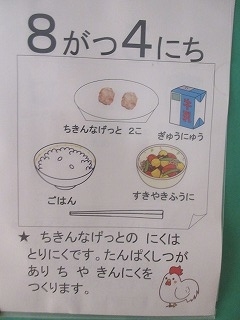 8がつ4にち
ちきんなげっと 2こ
牛乳
ぎゅうにゅう
ごはん
すきやきふうに
★ ちきんなげっとの にくは
とりにくです。たんぱくしつが
あり ち や きんにくを
つくります。